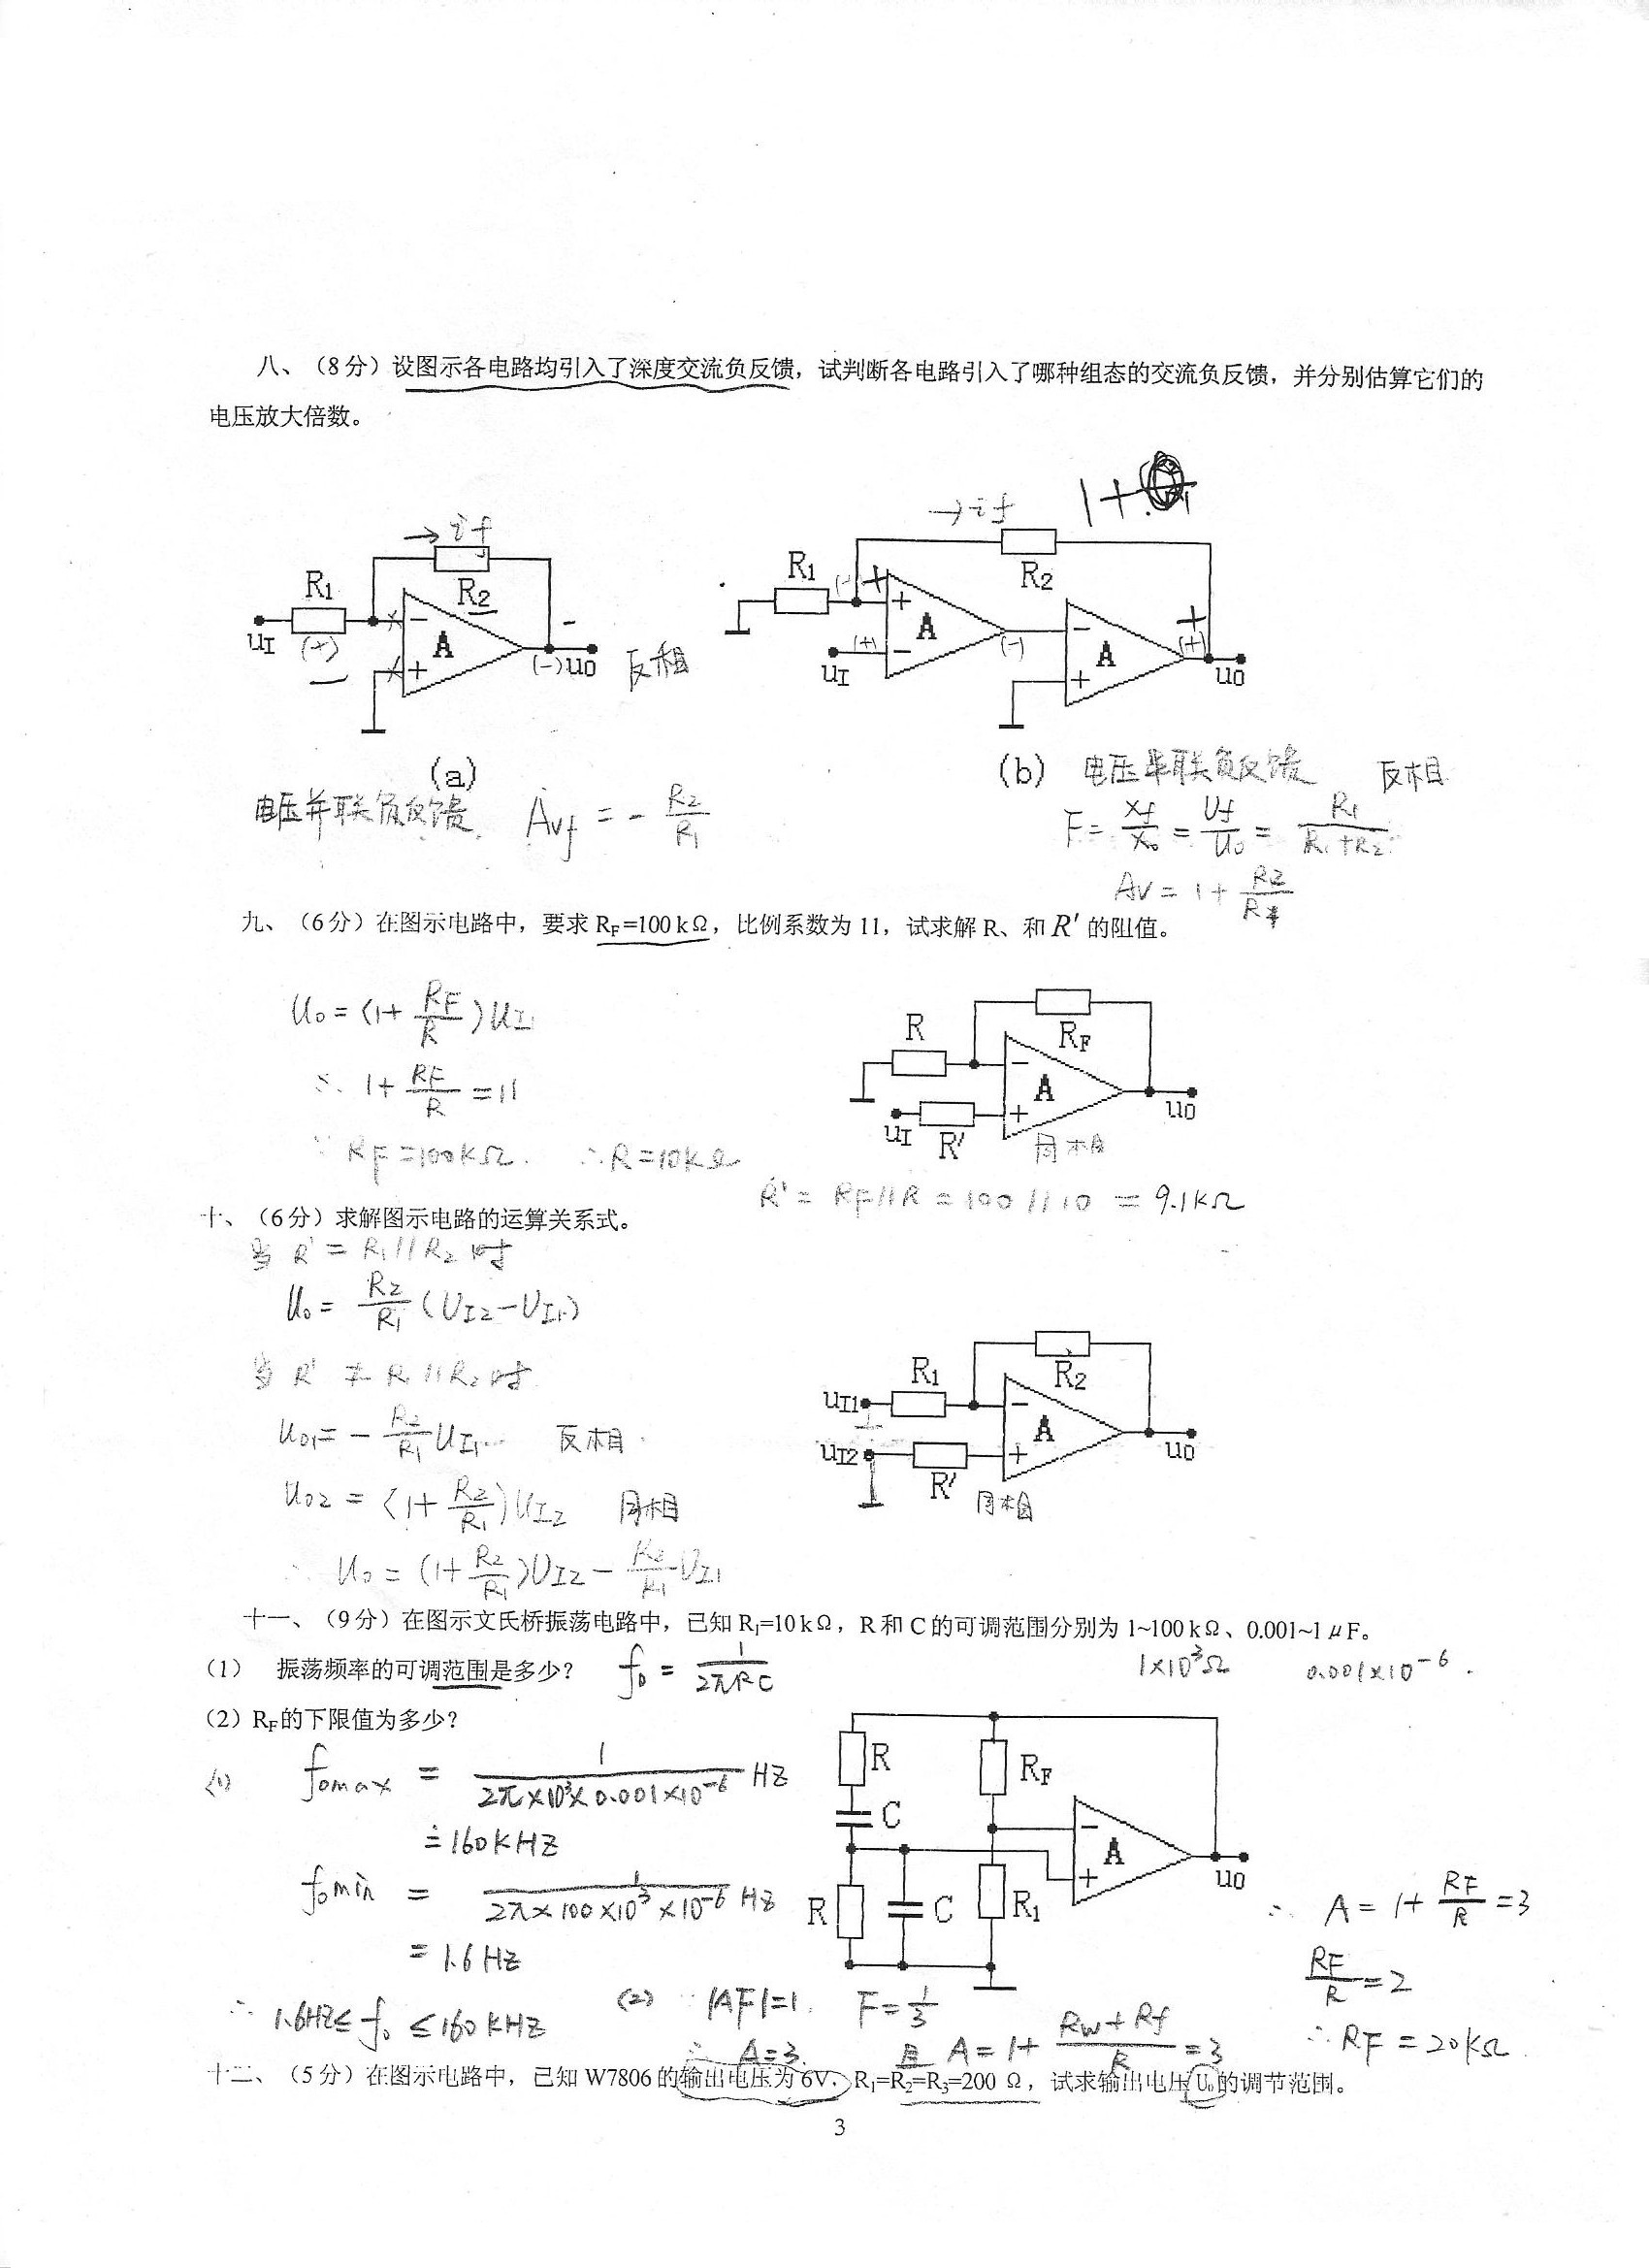 八、（8分）设图示各电路均引入了深度交流负反馈，试判断各电路引入了哪种组态的交流负反馈，并分别估算它们的
电压放大倍数。
1+
→if
→if
R₁
R₂
uI
(+)
−
A
+
(-)
uO
反相
R₁
R₂
(-)
+
+
A
−
(+)
uI
(-)
−
A
+
+
(+)
uO
(a)
(b)
电压串联负反馈
反相
电压并联负反馈
Avf = - R2/R1
F = Xf/Xo = Uf/Uo = R1/(R1+R2)
Av = 1 + R2/R
九、（6分）在图示电路中，要求 RF=100 kΩ，比例系数为 11，试求解 R、和 R′ 的阻值。
Uo = (1+ RF/R) UI
∴ 1+ RF/R = 11
∵ RF=100KΩ. ∴R=10KΩ
R
RF
−
A
+
uI
R′
uO
同相
R' = RF//R = 100//10 = 9.1KΩ
十、（6分）求解图示电路的运算关系式。
当 R' = R1//R2 时
Uo = R2/R1 (UI2-UI1)
当 R' ≠ R1//R2 时
Uo1= - R2/R1 UI1 反相
Uo2 = (1+ R2/R1) UI2 同相
∴ Uo = (1+ R2/R1) UI2 - R2/R1 UI1
R₁
R₂
uI1
uI2
−
A
+
R′
uO
同相
十一、（9分）在图示文氏桥振荡电路中，已知 R₁=10 kΩ，R 和 C 的可调范围分别为 1~100 kΩ、0.001~1 μF。
（1） 振荡频率的可调范围是多少？ f0 = 1/(2πRC)
1×10³Ω
0.001×10⁻⁶.
（2）RF的下限值为多少？
(1) fomax = 1/(2π×10³×0.001×10⁻⁶) HZ
≐160KHZ
fomin = 1/(2π×100×10³×10⁻⁶) HZ
= 1.6HZ
∴ 1.6HZ≤ f0 ≤160KHZ
R
C
RF
R
C
R₁
−
A
+
uO
(2) ∵ |AF|=1. F=1/3
∴ A=3. 且 A=1+ (Rw+Rf)/R =3
∴ A= 1+ RF/R =3
RF/R =2
∴ RF =20KΩ.
十二、（5分）在图示电路中，已知 W7806 的输出电压为 6V，R₁=R₂=R₃=200 Ω，试求输出电压U₀的调节范围。
3